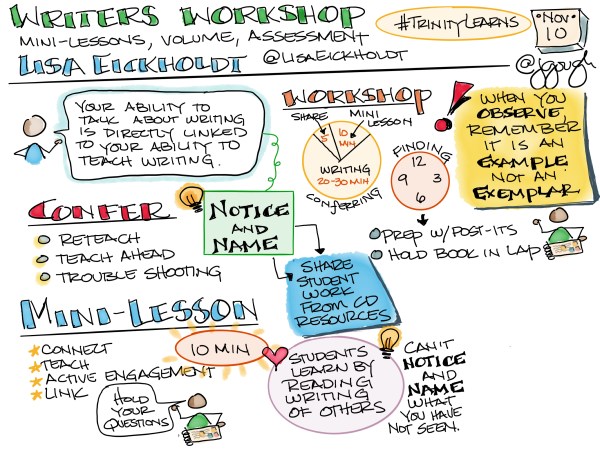 WRITERS WORKSHOP
MINI-LESSONS, VOLUME, ASSESSMENT
LISA EICKHOLDT @LISAEICKHOLDT
#TRINITYLEARNS
NOV
10
@jgough
YOUR ABILITY TO
TALK ABOUT WRITING
IS DIRECTLY LINKED
TO YOUR ABILITY TO
TEACH WRITING.
WORKSHOP
SHARE
MINI
LESSON
5
10
MIN
WRITING
20-30 MIN
CONFERRING
FINDING
12
9
3
6
PREP W/POST-ITS
HOLD BOOK IN LAP
WHEN YOU
OBSERVE,
REMEMBER
IT IS AN
EXAMPLE
NOT AN
EXEMPLAR
CONFER
RETEACH
TEACH AHEAD
TROUBLE SHOOTING
NOTICE
AND
NAME
SHARE
STUDENT
WORK
FROM CD
RESOURCES
MINI-LESSON
10 MIN
CONNECT
TEACH
ACTIVE ENGAGEMENT
LINK
HOLD
YOUR
QUESTIONS
STUDENTS
LEARN BY
READING
WRITING
OF OTHERS
CAN'T
NOTICE
AND
NAME
WHAT
YOU HAVE
NOT SEEN.